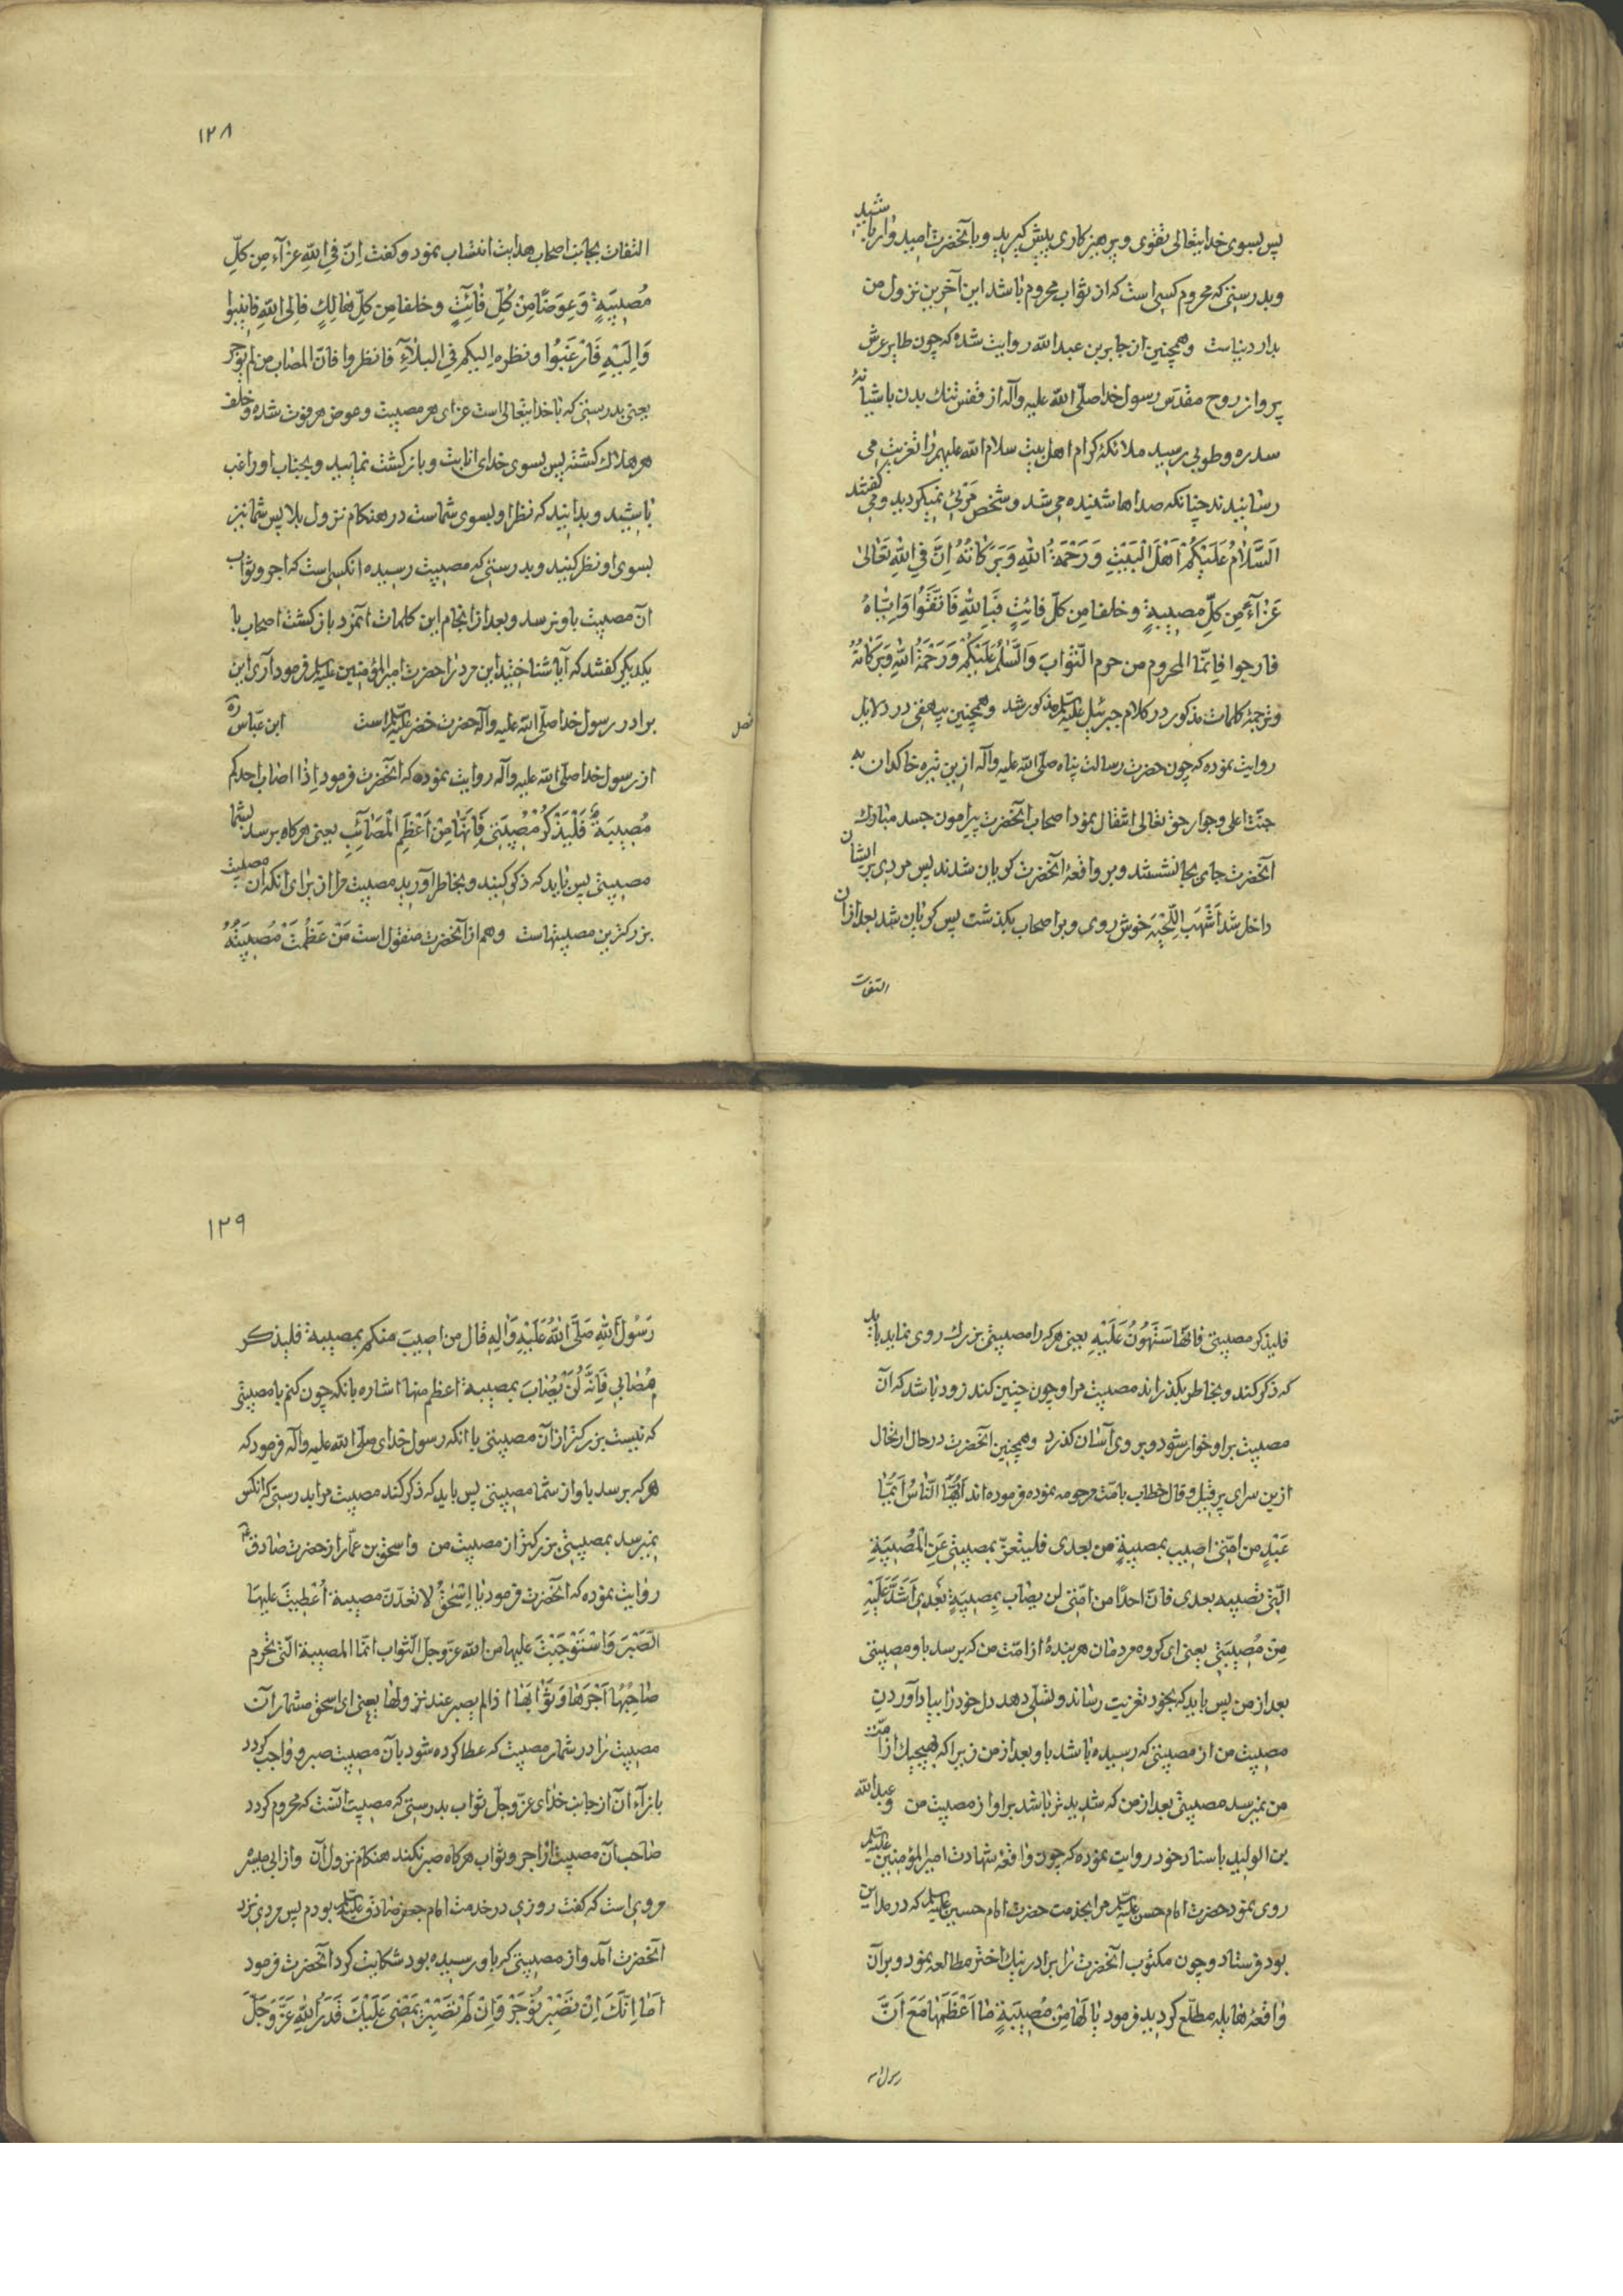 پس بسوی خدایتعالی تقوی و پرهیزکاری پیش گیرید و بآنحضرت امیدوار باشید
و بدرستی که محروم کسی است که از ثواب محروم باشد این آخرین نزول من
بدار دنیاست و همچنین از جابر بن عبدالله روایت شده که چون طایر عرش
پرواز روح مقدس رسول خدا صلّی الله علیه وآله از قفس تنک بدن باشیانهٔ
سدره و طوبی رسید ملائکهٔ کرام اهل بیت سلام الله علیهم را تعزیت می
رسانیدند چنانکه صداها شنیده می شد و شخص مرئی نمیکردید و می گفتند
اَلسَّلامُ عَلَیْکُمْ اَهْلَ الْبَیْتِ وَ رَحْمَةُ اللهِ وَ بَرَکاتُهُ اِنَّ فِی اللهِ تَعٰالیٰ
عَزٰآءً مِن کلِّ مصیبةٍ و خلفا مِن کلّ فائِتٍ فَبِاللهِ فَاتَّقُوا وَ اِیّاهُ
فارجوا فَاِنّما المحروم من حرم الثّوابَ وَالسَّلٰمُ عَلَیْکُمْ وَرَحْمَةُ اللهِ وَبَرَکٰاتُهُ
و ترجمهٔ کلمات مذکور در کلام جبرئیل علیه السلم مذکور شد و همچنین بیهقی در دلایل
روایت نموده که چون حضرت رسالت پناه صلّی الله علیه وآله ازین تیره خاکدان به
جنّت اعلی و جوار حق تعالی انتقال نمود اصحاب آنحضرت پیرامون جسد مبارک
آنحضرت جای بجا نشستند و بر واقعهٔ آنحضرت کریان شدند پس مردی بر ایشان
داخل شد اَشْهَب اللِّحْیَه خوش روی و بر اصحاب بکذشت پس کریان شد بعد ازان
التفات
۱۲۸
التفات بجانب اصحاب هدایت انتساب نمود و کفت اِنّ فِی اللهِ عزآء مِن کلّ
مُصیبَةٍ وَ عِوَضًا مِنْ کُلِّ فٰائِتٍ و خلفا مِن کلّ هٰالِكٍ فاِلی اللهِ فٰانیبوا
وَ اِلَیْهِ فَارْغَبُوا و نظره الیکم فی البلٰآءِ فانظروا فانّ المصاب من لم یوجر
یعنی بدرستی که با خدایتعالی است عزای هر مصیبت و عوض هر فوت شده و خلف
هر هلاک کشته پس بسوی خدای انابت و بازکشت نمایید و بجناب او راغب
باشید و بدانید که نظر او بسوی شماست در هنکام نزول بلا پس شما نیز
بسوی او نظر کنید و بدرستی که مصیبت رسیده انکسی است که اجر و ثواب
آن مصیبت باو نرسد و بعد از انجام این کلمات انمرد بازکشت اصحاب با
یکدیکر کفتند که آیا شناختید این مرد را حضرت امیر المؤمنین علیه السلم فرمود آری این
برادر رسول خدا صلّی الله علیه وآله حضرت خضر علیه السلم است ابن عبّاس ره
فصل
از رسول خدا صلّی الله علیه وآله روایت نموده که آنحضرت فرمود اِذٰا اصٰاب احدکم
مُصیبَةٌ فَلْیَذْکُرْ مُصیبَتی فَاِنَّهٰا مِنْ اَعْظَمِ الْمَصٰائِبِ یعنی هرکاه برسد بشما
مصیبتی پس باید که ذکر کنید و بخاطر آورید مصیبت مرا از برای انکه آن مصیبت
بزرکترین مصیبتهاست و هم از آنحضرت منقول است مَنْ عَظُمَتْ مُصیبَتُهُ
فلیذکر مصیبتی فانّها سَتَهُونُ عَلَیْهِ یعنی هرکه را مصیبتی بزرك روی نماید باید
که ذکر کند و بخاطر بکذراند مصیبت مرا و چون چنین کند زود باشد که آن
مصیبت بر او خوار شود و بر وی آسان کذرد و همچنین آنحضرت در حال ارتحال
ازین سرای پر قیل و قال خطاب بامّت مرحومه نموده فرموده اند اَیُّهَا النّاسُ اَیُّمٰا
عَبْدٍ من امّتی اصیب بمصیبةٍ من بعدی فلیتعزّ بمصیبتی عَنِ الْمُصیبَةِ
الّتی تصیبه بعدی فانّ احدًا من امّتی لن یصٰاب بِمصیبَةٍ بَعْدی اَشَدَّ عَلَیْهِ
مِنْ مُصیبَتی یعنی ای کروه مردمان هر بندهٔ از امّت من که برسد باو مصیبتی
بعد از من پس باید که بخود تعزیت رساند و تسلّی دهد دل خود را بیاد آوردن
مصیبت من از مصیبتی که رسیده باشد باو بعد از من زیرا که بهیچیك از امّت
من نمیرسد مصیبتی بعد از من که شدیدتر باشد بر او از مصیبت من و عبدالله
بن الولید باسناد خود روایت نموده که چون واقعهٔ شهادت امیر المؤمنین علیه السلم
روی نمود حضرت امام حسن علیه السلم مرا بخدمت حضرت امام حسین علیه السلم که در مداین
بود فرستاد و چون مکتوب آنحضرت را برادر نیك اختر مطالعه نمود و بر آن
واقعهٔ هایله مطلّع کردید فرمود یٰا لَهٰا مِنْ مُصیبَةٍ مٰا اَعْظَمَهٰا مَعَ اَنَّ
رسول الله
۱۲۹
رَسُولَ اللهِ صَلَّی اللهُ عَلَیْهِ وَاٰلِهِ قٰال من اصیبَ منکم بمصیبة فلیذکر
مُصٰابی فَاِنَّهُ لَنْ یُصٰابَ بمصیبة اعظم منها اشاره بانکه چون کنم با مصیبتی
که نیست بزرکتر از آن مصیبتی با انکه رسول خدای صلّی الله علیه وآله فرمود که
هرکه برسد باو از شما مصیبتی پس باید که ذکر کند مصیبت مرا بدرستی که انکس
نمیرسد بمصیبتی بزرکتر از مصیبت من و اسحق بن عمّار از حضرت صٰادق
روایت نموده که آنحضرت فرمود یٰا اِسْحٰقُ لا تعدّنّ مصیبة اُعْطیتَ علیهٰا
الصَّبْرَ وَ اسْتَوْجَبْتَ علیها من الله عزّ وجلّ الثّواب انّما المصیبة الّتی یحرم
صٰاحِبُهٰا اَجْرَهٰا وَثَوٰابَهٰا اذا لم یصبر عند نزولها یعنی ای اسحق مشمار آن
مصیبت را در شمار مصیبت که عطا کرده شود بآن مصیبت صبر و واجب کردد
بازاء آن از جانب خدای عزّ وجلّ ثواب بدرستی که مصیبت آنست که محروم کردد
صاحب آن مصیبت از اجر و ثواب هرکاه صبر نکند هنکام نزول آن و از ابی میسّر
مروی است که کفت روزی در خدمت امام جعفر صادق علیه السلم بودم پس مردی نزد
آنحضرت آمد و از مصیبتی که باو رسیده بود شکایت کرد آنحضرت فرمود
اَمٰا اِنَّكَ اِنْ تَصْبِرْ تُوْجَرْ وَ اِنْ لَمْ تَصْبِرْ یَمْضی عَلَیْكَ قَدَرُ اللهِ عَزَّ وَجَلَّ